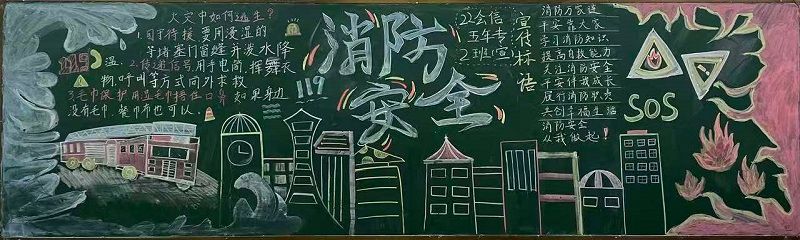 火灾中如何逃生?
1.固守待援 要用浸湿的
等堵塞门窗缝并泼水降
温
2.传递信号 用手电筒,挥舞衣
物,呼叫等方式向外求救
3.毛巾保护 用湿毛巾捂住口鼻 如果身边
没有毛巾,餐巾布也可以
119
119
消防
安全
22会信
五年专
2班(宣
宣传标语
消防万家连
平安靠大家
学习消防知识
提高自救能力
关注消防安全
平安伴我成长
履行消防职责
共创幸福生活
消防安全
从我做起!
SOS